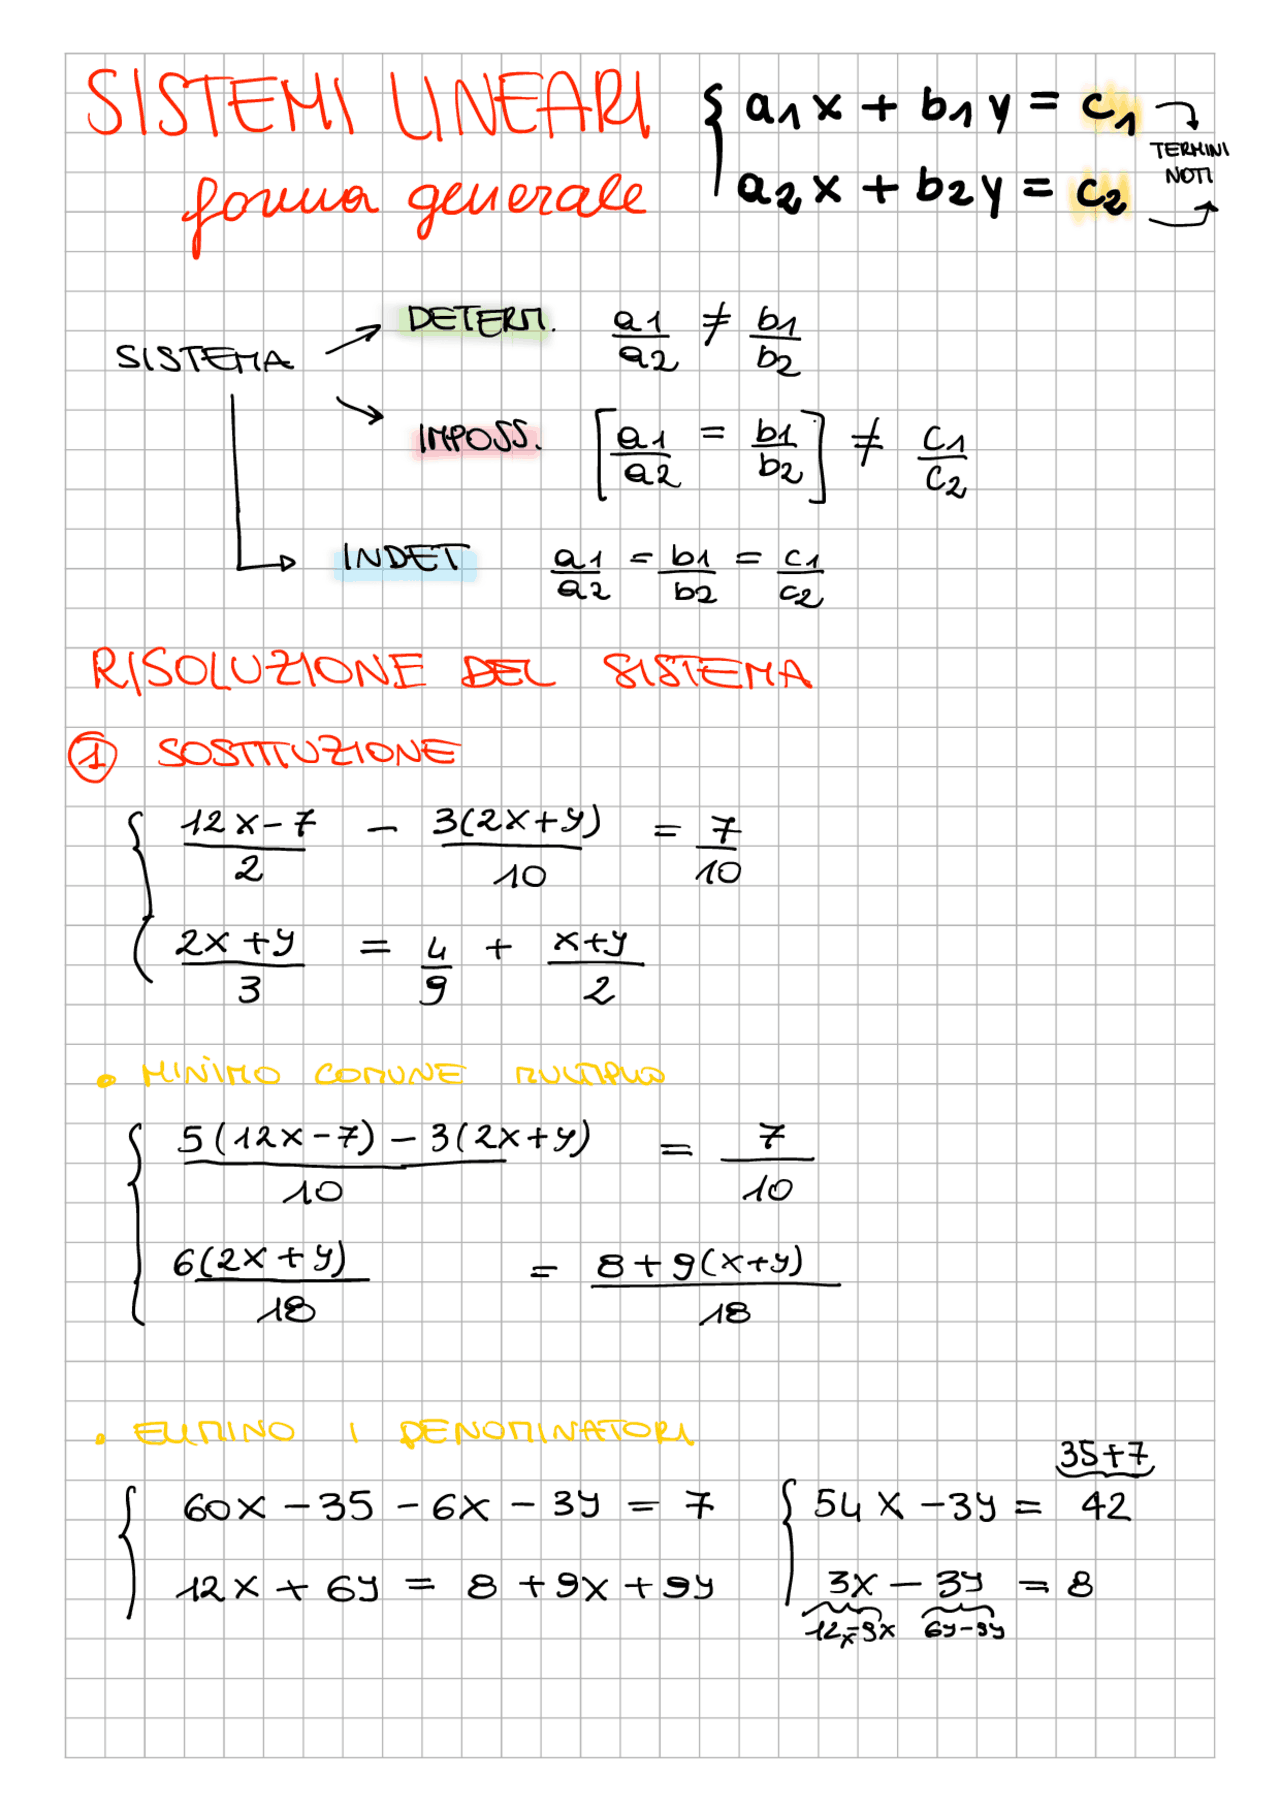 SISTEMI LINEARI
forma generale
{ a1x + b1y = c1
a2x + b2y = c2
TERMINI
NOTI
SISTEMA
DETERM. a1/a2 ≠ b1/b2
IMPOSS. [a1/a2 = b1/b2] ≠ c1/c2
INDET a1/a2 = b1/b2 = c1/c2
RISOLUZIONE DEL SISTEMA
① SOSTITUZIONE
{ (12x-7)/2 - 3(2x+y)/10 = 7/10
(2x+y)/3 = 4/9 + (x+y)/2
• MINIMO COMUNE MULTIPLO
{ (5(12x-7) - 3(2x+y))/10 = 7/10
6(2x+y)/18 = (8+9(x+y))/18
• ELIMINO I DENOMINATORI
{ 60x - 35 - 6x - 3y = 7
12x + 6y = 8 + 9x + 9y
35+7
{ 54x - 3y = 42
3x - 3y = 8
12x-9x 6y-9y